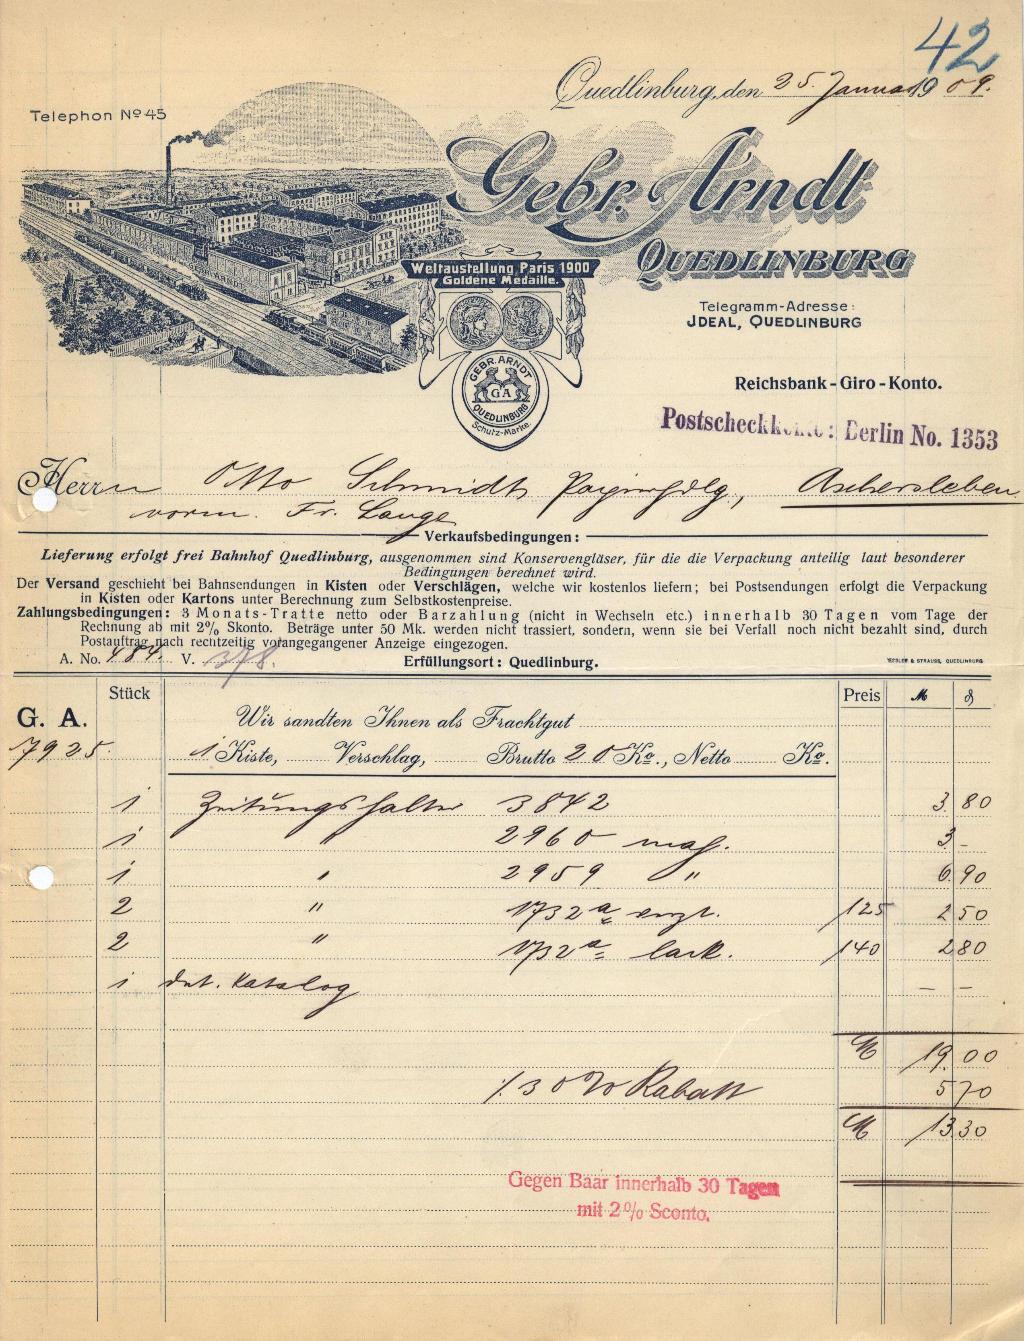 42
Telephon No 45
Quedlinburg, den 25. Januar 1909.
Gebr. Arndt
QUEDLINBURG
Weltaustellung Paris 1900
Goldene Medaille.
Telegramm-Adresse:
JDEAL, QUEDLINBURG
GEBR. ARNDT
GA
QUEDLINBURG
Schutz-Marke.
Reichsbank-Giro-Konto.
Postscheckkonto: Berlin No. 1353
Herrn Otto Schmidt Aschersleben
vorm. Fr. Lange
Verkaufsbedingungen:
Lieferung erfolgt frei Bahnhof Quedlinburg, ausgenommen sind Konservengläser, für die die Verpackung anteilig laut besonderer
Bedingungen berechnet wird.
Der Versand geschieht bei Bahnsendungen in Kisten oder Verschlägen, welche wir kostenlos liefern; bei Postsendungen erfolgt die Verpackung
in Kisten oder Kartons unter Berechnung zum Selbstkostenpreise.
Zahlungsbedingungen: 3 Monats-Tratte netto oder Barzahlung (nicht in Wechseln etc.) innerhalb 30 Tagen vom Tage der
Rechnung ab mit 2% Skonto. Beträge unter 50 Mk. werden nicht trassiert, sondern, wenn sie bei Verfall noch nicht bezahlt sind, durch
Postauftrag nach rechtzeitig vorangegangener Anzeige eingezogen.
A. No. 484. V. 378. Erfüllungsort: Quedlinburg. & STRAUSS, QUEDLINBURG
Stück Preis M ₰
G. A. Wir sandten Ihnen als Frachtgut
7925. 1 Kiste, Verschlag, Brutto 20 Ko., Netto Ko.
1 Zeitungshalter 3842 3.80
1 " 2960 mah. 3 -
1 " 2959 " 6.90
2 " 1732a 125 2 50
2 " 1732a lack. 140 2 80
1 Katalog - -
M 19.00
./. 30% Rabatt 5 70
M 13.30
Gegen Baar innerhalb 30 Tagen
mit 2% Sconto.